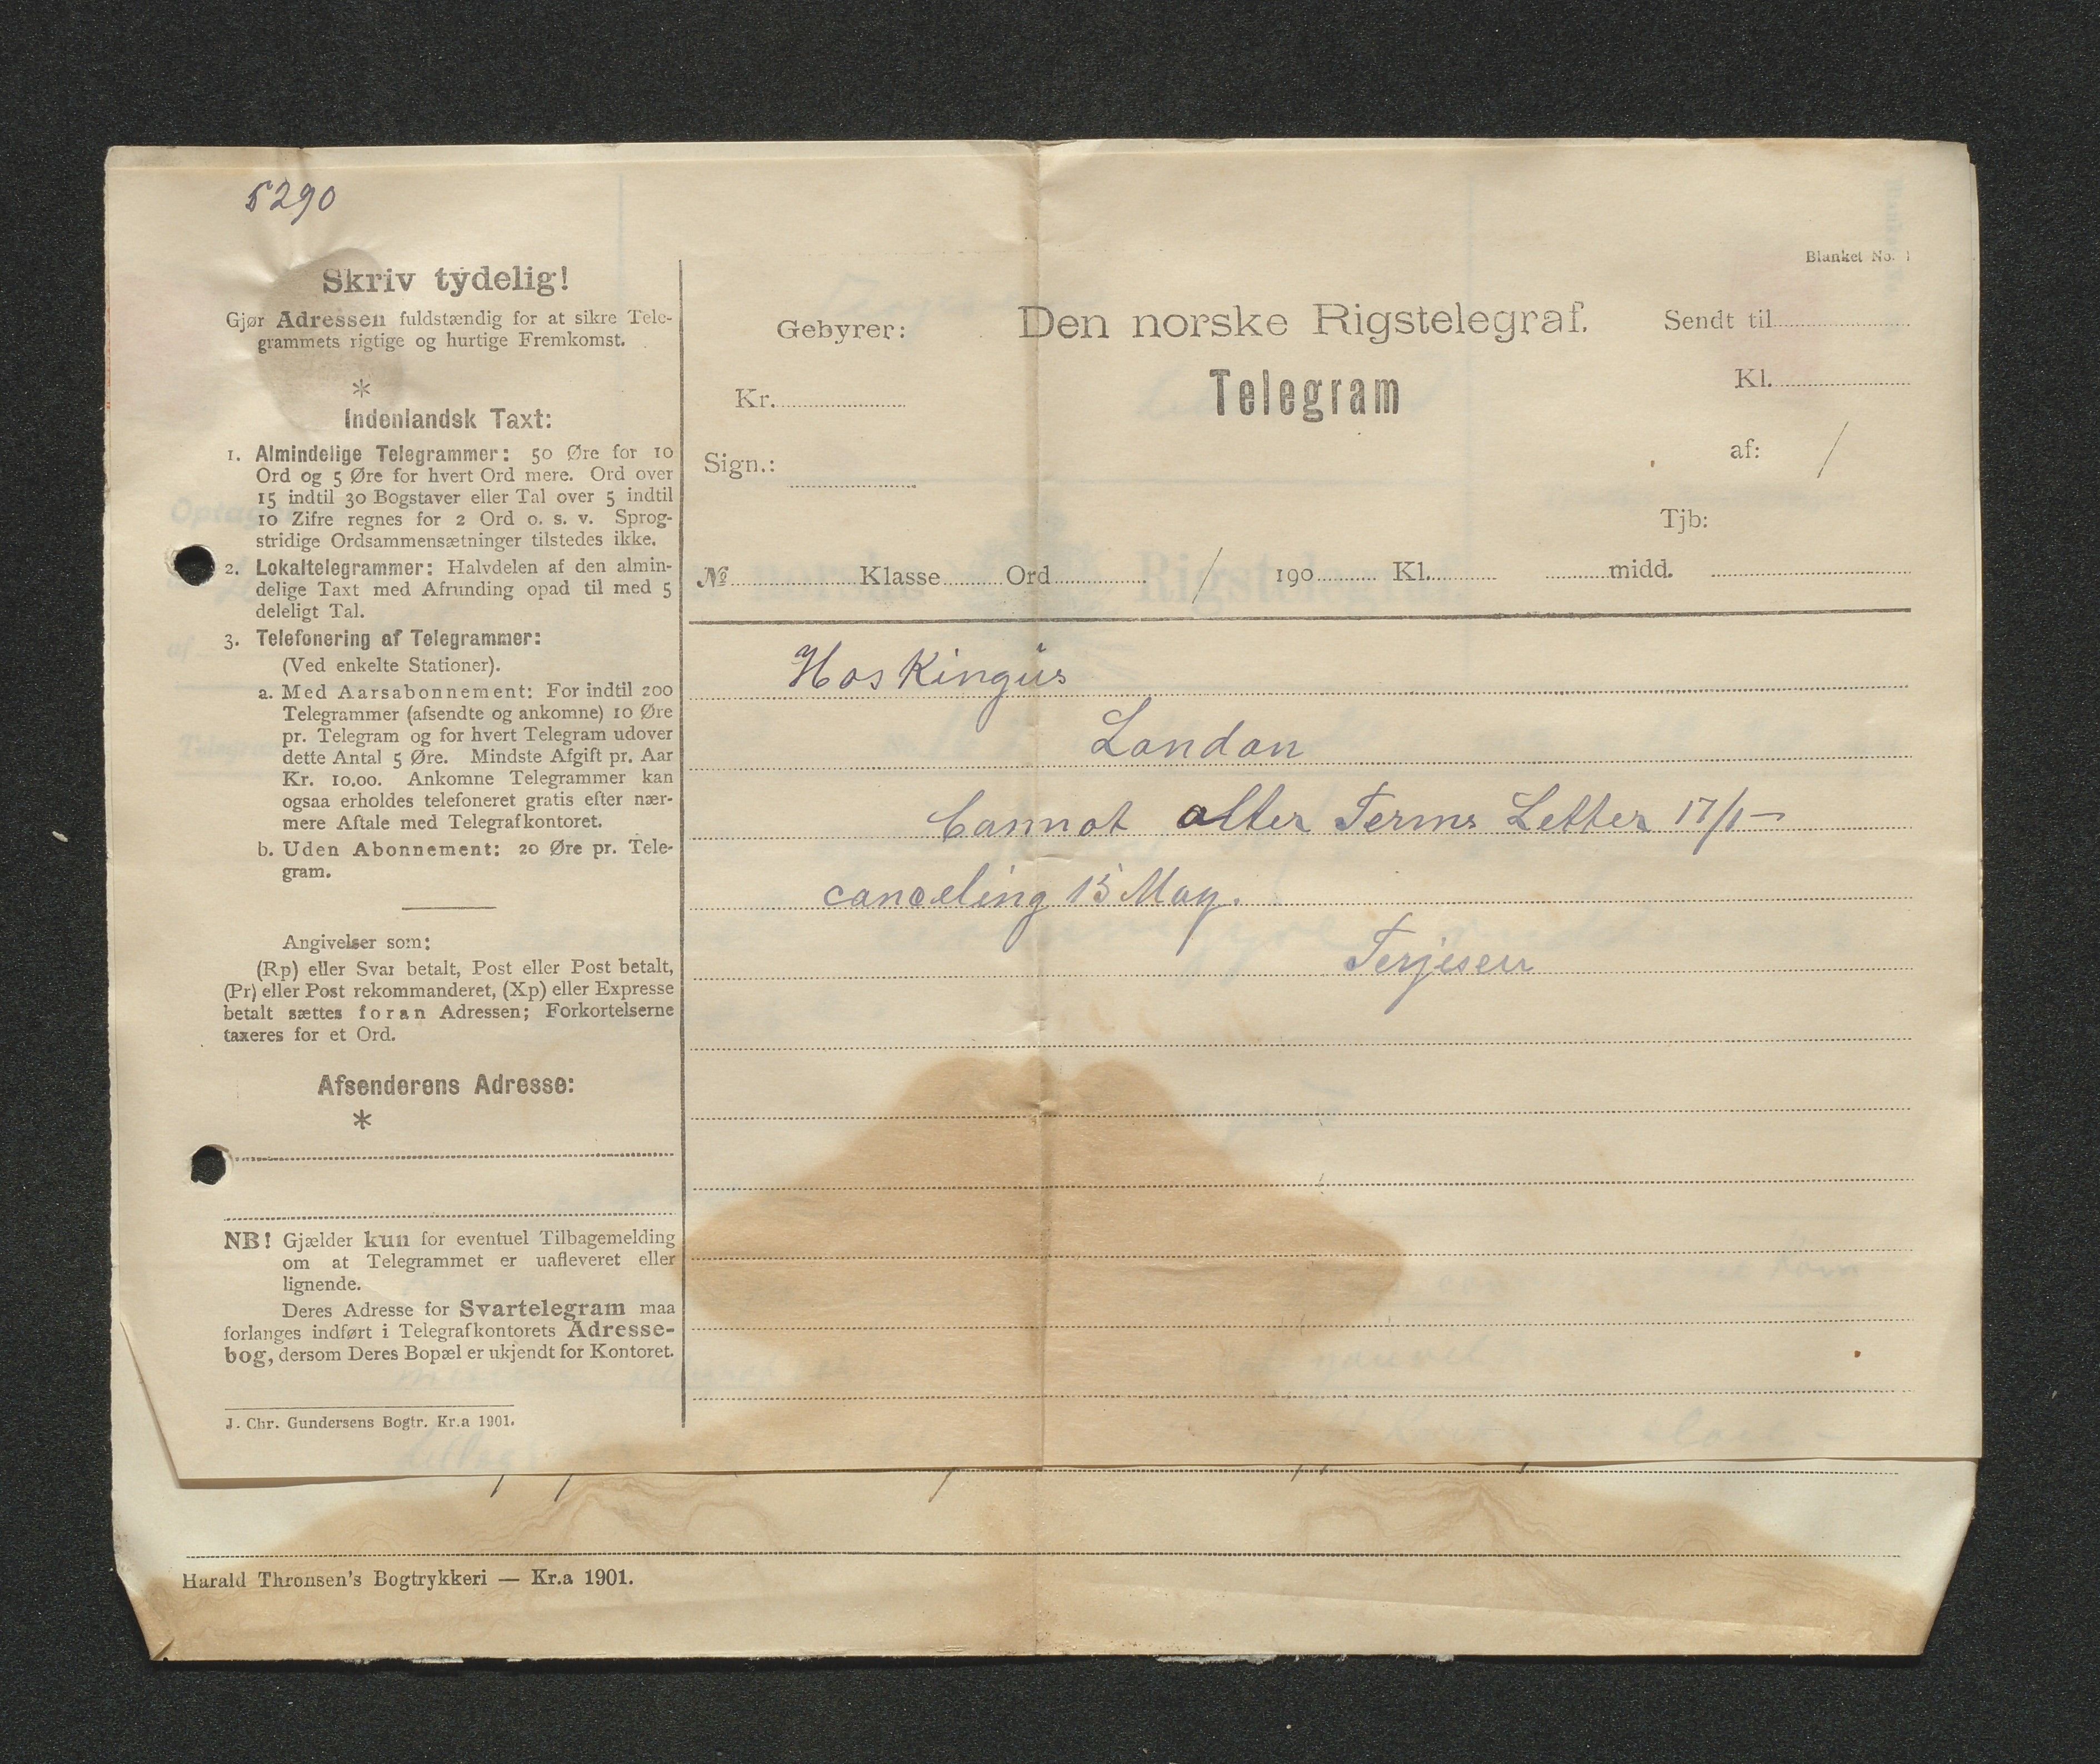 5290
Skriv tydelig!
Gjør Adressen fuldstændig for at sikre Tele-
grammets rigtige og hurtige Fremkomst.
*
Indenlandsk Taxt:
1. Almindelige Telegrammer: 50 Øre for 10
Ord og 5 Øre for hvert Ord mere. Ord over
15 indtil 30 Bogstaver eller Tal over 5 indtil
10 Zifre regnes for 2 Ord o. s. v. Sprog-
stridige Ordsammensætninger tilstedes ikke.
2. Lokaltelegrammer: Halvdelen af den almin-
delige Taxt med Afrunding opad til med 5
deleligt Tal.
3. Telefonering af Telegrammer:
(Ved enkelte Stationer).
a. Med Aarsabonnement: For indtil 200
Telegrammer (afsendte og ankomne) 10 Øre
pr. Telegram og for hvert Telegram udover
dette Antal 5 Øre. Mindste Afgift pr. Aar
Kr. 10.00. Ankomne Telegrammer kan
ogsaa erholdes telefoneret gratis efter nær-
mere Aftale med Telegrafkontoret.
b. Uden Abonnement: 20 Øre pr. Tele-
gram.
Angivelser som:
(Rp) eller Svar betalt, Post eller Post betalt,
(Pr) eller Post rekommanderet, (Xp) eller Expresse
betalt sættes foran Adressen; Forkortelserne
taxeres for et Ord.
Afsenderens Adresse:
*
NB! Gjælder kun for eventuel Tilbagemelding
om at Telegrammet er uafleveret eller
lignende.
Deres Adresse for Svartelegram maa
forlanges indført i Telegrafkontorets Adresse-
bog, dersom Deres Bopæl er ukjendt for Kontoret.
J. Chr. Gundersens Bogtr. Kr.a 1901.
Blanket No. 1
Gebyrer: Den norske Rigstelegraf. Sendt til
Kr. Telegram Kl.
Sign.: af: /
Tjb:
№ Klasse Ord / 190 Kl. midd.
Hoskingus
London
Cannot alter Terms Letter 17/1 —
canceling 15 May.
Terjesen
Harald Thronsen's Bogtrykkeri — Kr.a 1901.